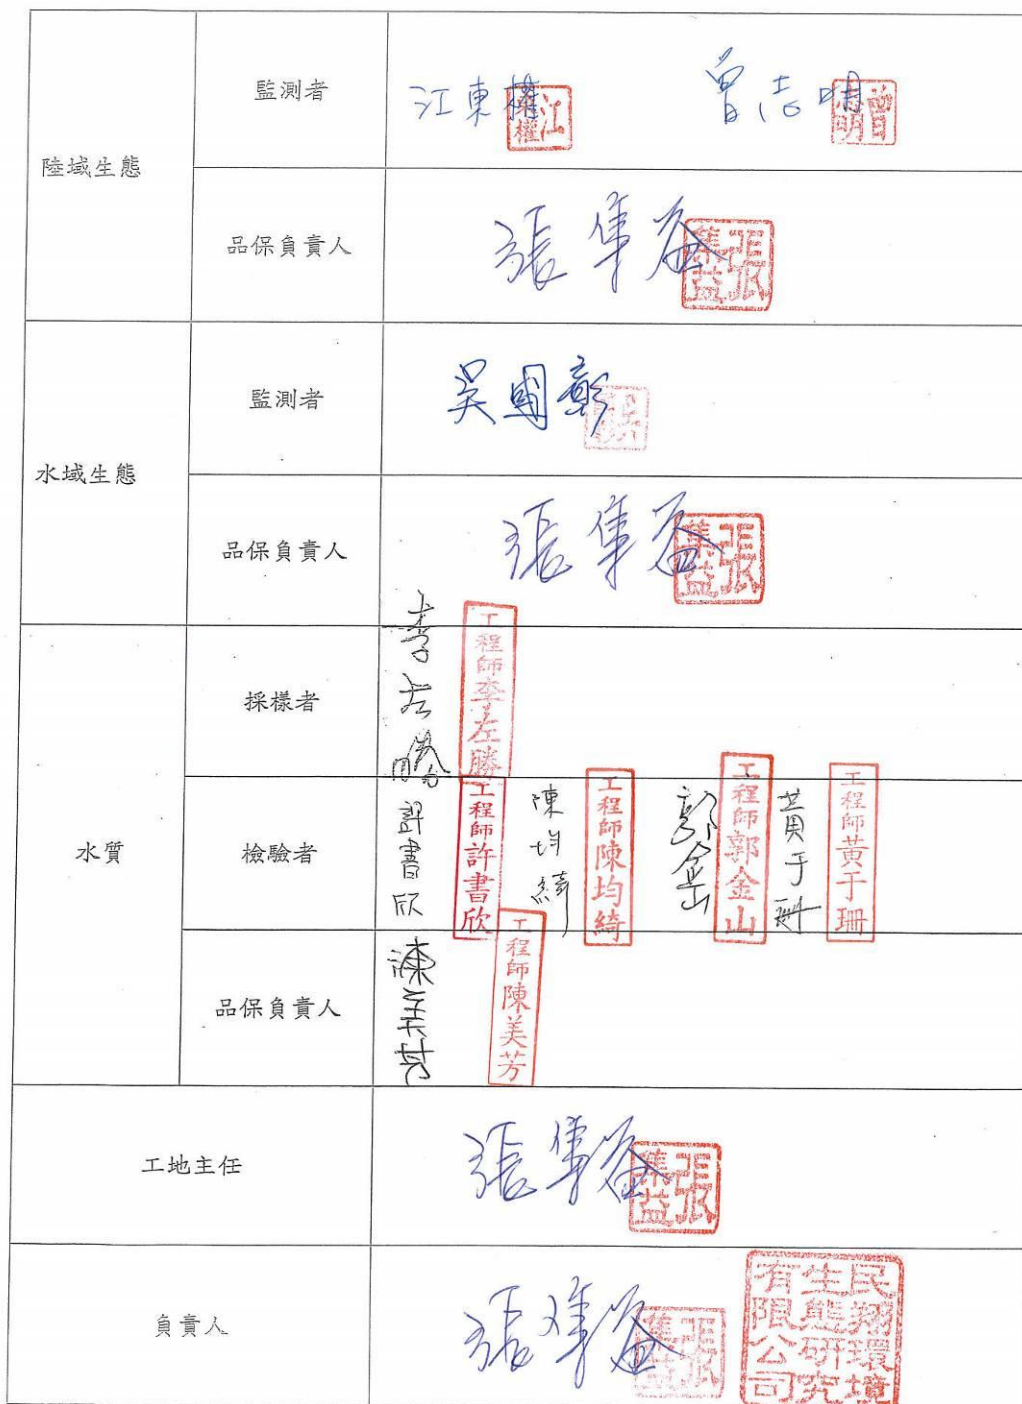 陸域生態
監測者
江東權 江東權 曾志明 曾志明
品保負責人
張集益 張集益
水域生態
監測者
吳國彰
品保負責人
張集益 張集益
水質
採樣者
李左勝 工程師李左勝
檢驗者
許書欣 工程師許書欣 陳均綺 工程師陳均綺 郭金山 工程師郭金山 黃于珊 工程師黃于珊
品保負責人
陳美芳 工程師陳美芳
工地主任
張集益 張集益
負責人
張集益 張集益 民翔環境生態研究有限公司